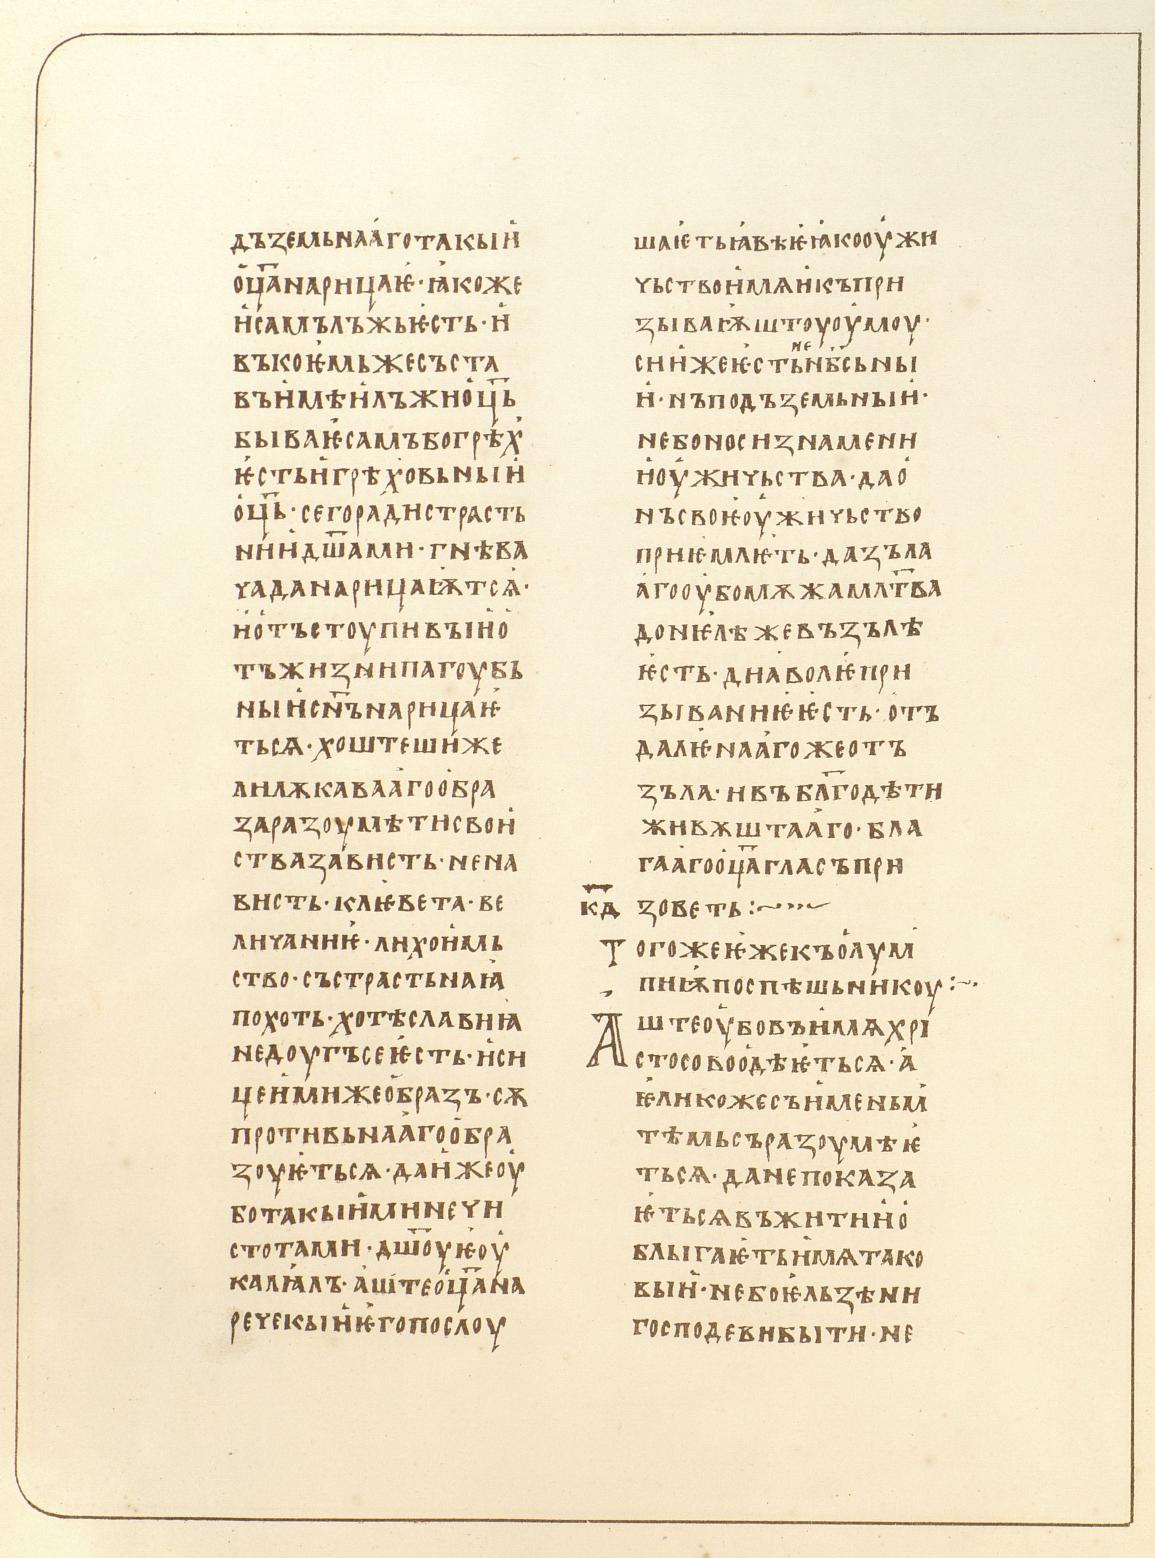 дъземьнааготакыи
оц҃анарицаѥ·ꙗкоже
исамълъжьѥсть·и
въкоѥмьжесъста
въимѣнлъжноць҃
бываѥсамъбогрѣх
ѥстьигрѣховьныи
оць҃·сегорадистрасть
нииидш҃ами·гнѣва
чаданарицаѭтсѧ·
иотъстоупивъıно
тъжизнипагоубь
ныисн҃ънарицаѥ
тьсѧ·хоштешиже
лилѫкаваагообра
заразоумѣтисвои
ствазависть·нена
висть·клѥвета·ве
личаниѥ·лихоимь
ство·състрастьнаꙗ
похоть·хотѣславиꙗ
недоугъсеѥсть·иси
цеимижеобразъ·сѫ
противьнаагообра
зоуѥтьсѧ·даижеоу
ботакыимиинечи
стотами·дш҃оуѥоу
калꙗлъ·аштеоц҃ана
речекыиѥгопослоу
шаѥтьꙗвѣѥꙗкооужи
чьствоимѧикъпри
зываѭштоуоумоу·
сиижеѥстьнен҃бсьны
и·нъподъземьныи·
небоносизнамени
иоужичьства·дао
нъсвоѥоужичьство
приѥмлѥть·дазъла
агооубомѫжамлт҃ва
дониѥлѣжевъзълѣ
ѥсть·диаволѥпри
зываниѥѥсть·отъ
далѥнаагожеотъ
зъла·ивъблг҃одѣти
живѫштааго·бла
гаагооц҃агласъпри
к҃д зоветь:~
тогожеѥжекъолум
пиѭпоспѣшьникоу:~
Аштеоубовъимѧхрі
стосовоодѣѥтьсѧ·а
ѥликожесъименьм
тѣмьсъразоумѣѥ
тьсѧ·данепоказа
ѥтьсѧвъжитиио
блыгаѥтьимѧтако
выи·небоѥльзѣни
господевибыти·не